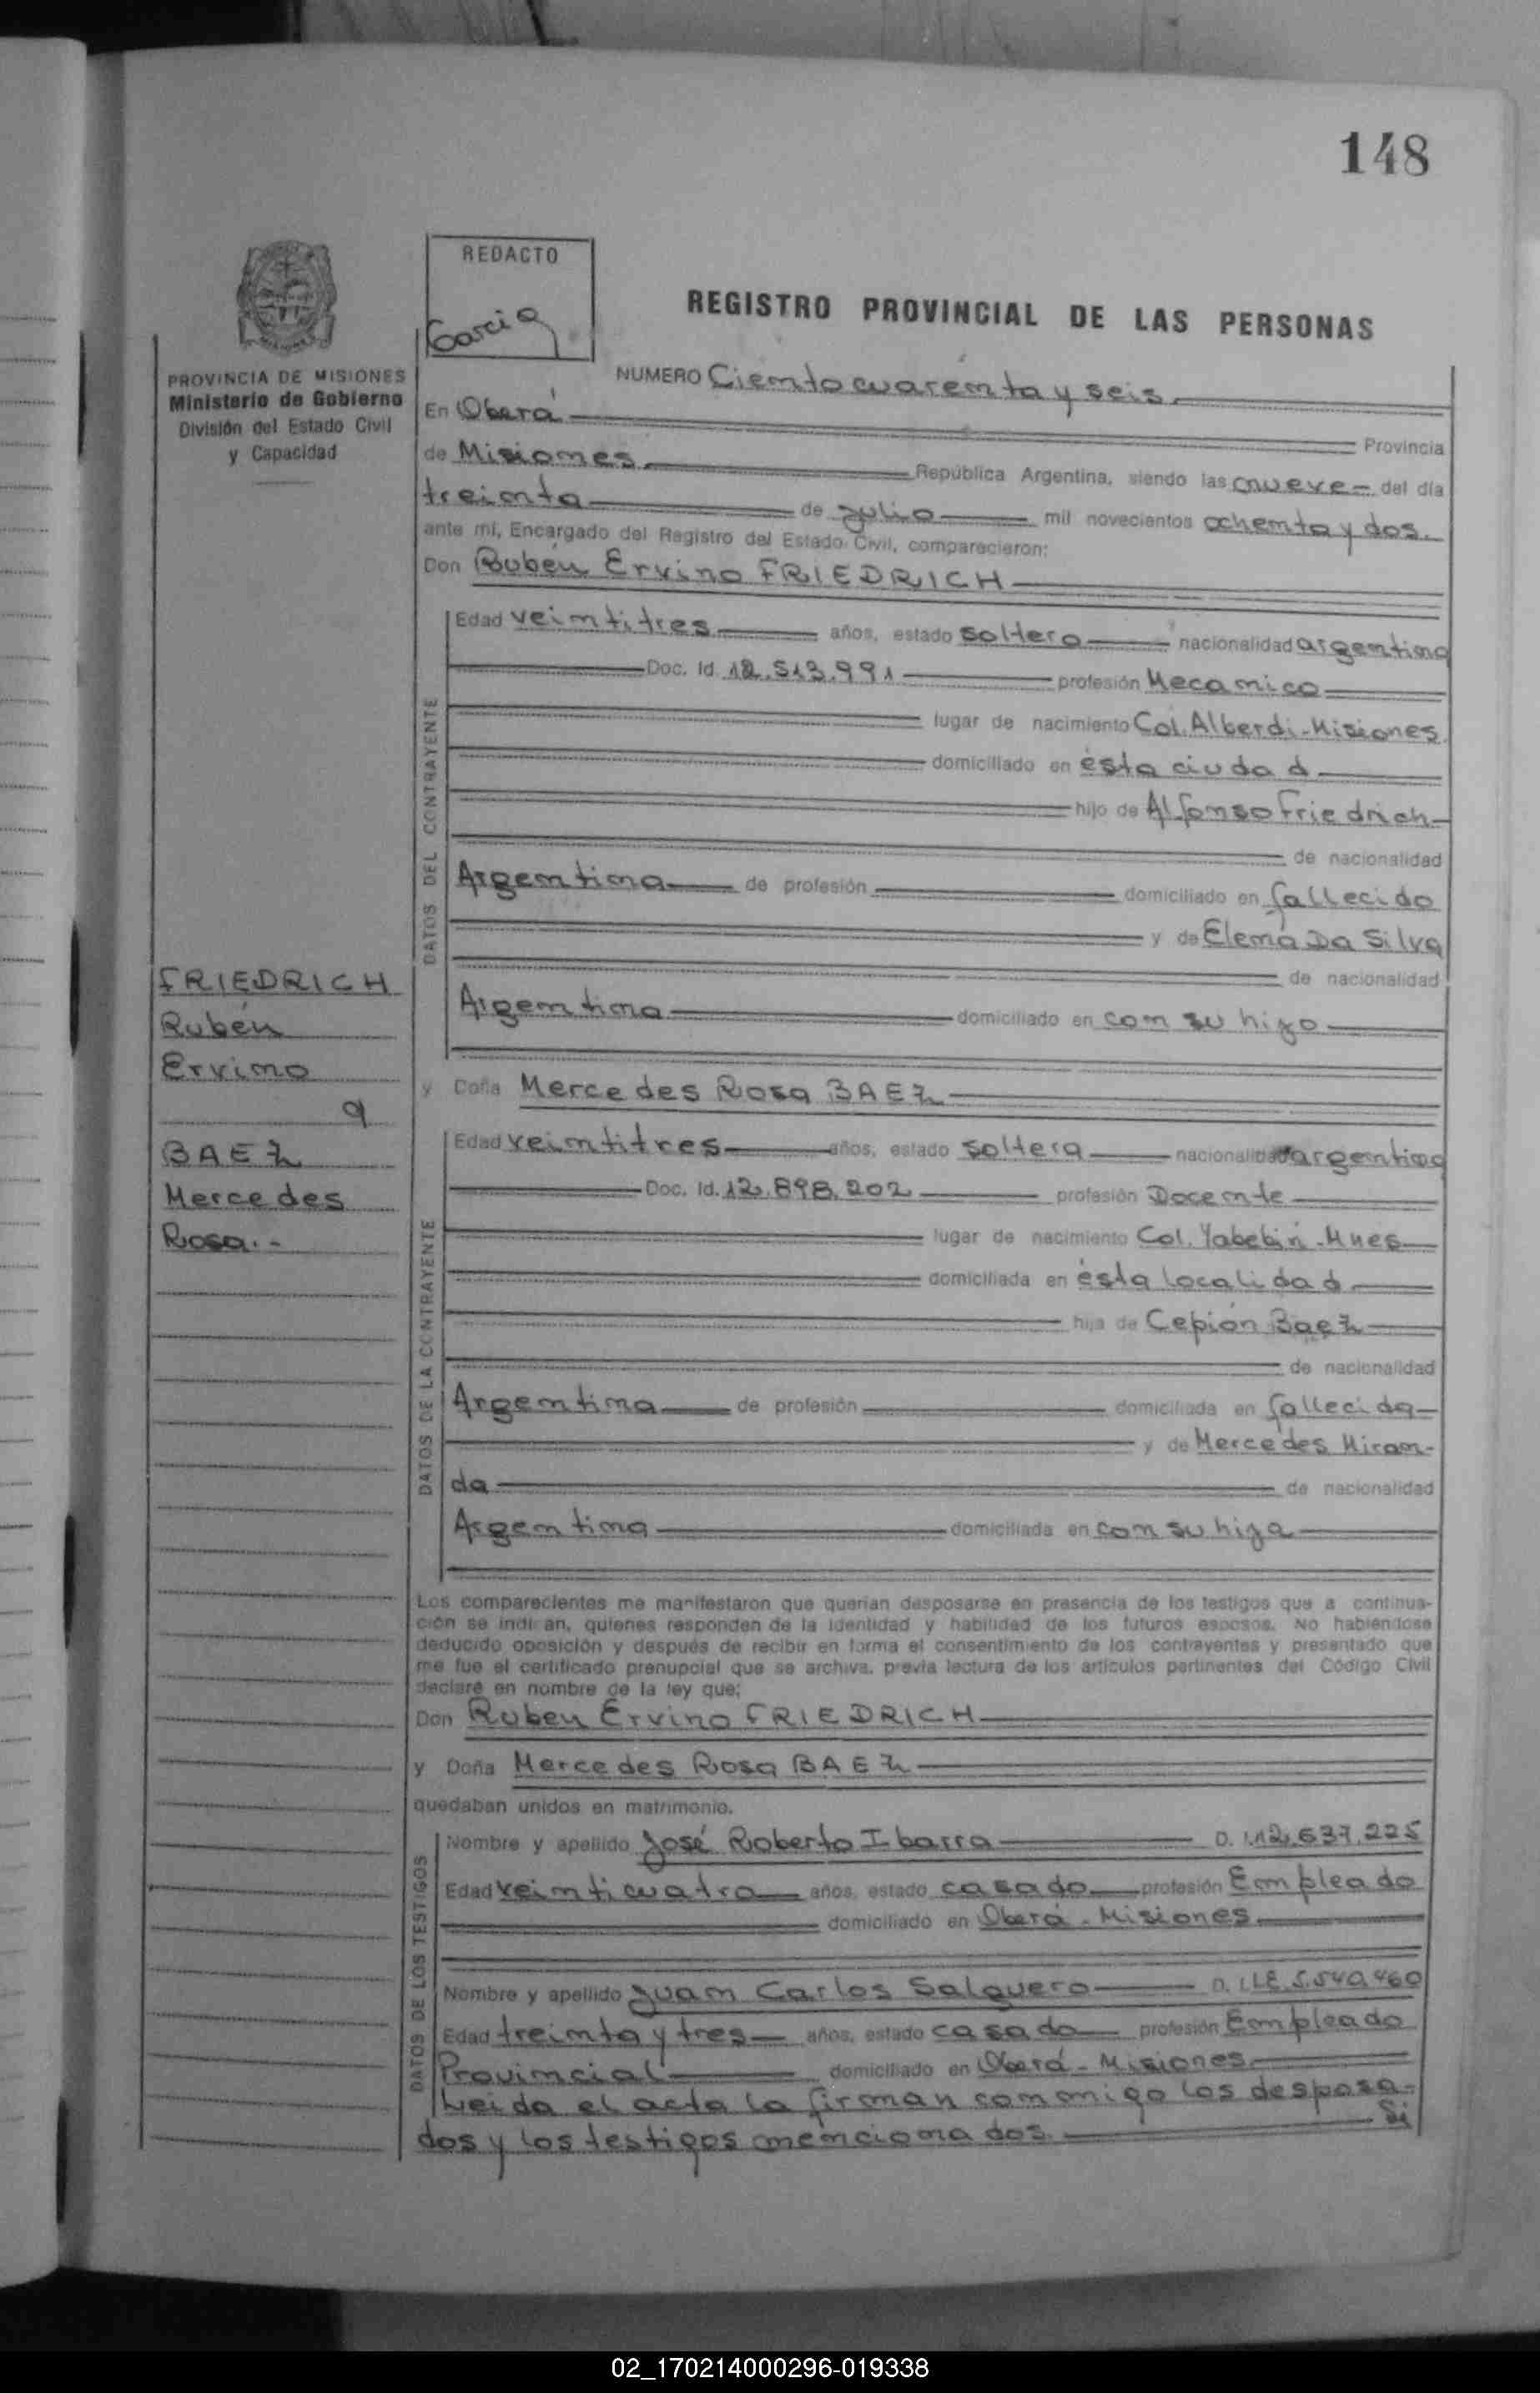 148
REDACTO
Garcia
REGISTRO PROVINCIAL DE LAS PERSONAS
PROVINCIA DE MISIONES
Ministerio de Gobierno
División del Estado Civil
y Capacidad
NUMERO Ciento cuarenta y seis.
En Oberá Provincia
de Misiones República Argentina, siendo las nueve del día
treinta de julio mil novecientos ochenta y dos.
ante mí, Encargado del Registro del Estado Civil, comparecieron:
Don Rubén Ervino FRIEDRICH
DATOS DEL CONTRAYENTE
Edad veintitres años, estado soltero nacionalidad argentina
Doc. Id. 12.513.991 profesión Mecanico
lugar de nacimiento Col. Alberdi-Misiones.
domiciliado en ésta ciudad
hijo de Alfonso Friedrich
de nacionalidad
Argentina de profesión domiciliado en fallecido
y de Elena Da Silva
de nacionalidad
Argentina domiciliado en con su hijo
FRIEDRICH
Rubén
Ervino
a
BAEZ
Mercedes
Rosa.-
y Doña Mercedes Rosa BAEZ
DATOS DE LA CONTRAYENTE
Edad veintitres años, estado soltera nacionalidad argentina
Doc. Id. 12.898.202 profesión Docente
lugar de nacimiento Col. Yabebiri-Mnes
domiciliada en ésta localidad
hija de Cepión Baez
de nacionalidad
Argentina de profesión domiciliada en fallecida
y de Mercedes Miran-
da de nacionalidad
Argentina domiciliada en con su hija
Los comparecientes me manifestaron que querían desposarse en presencia de los testigos que a continua-
ción se indican, quienes responden de la identidad y habilidad de los futuros esposos. No habiéndose
deducido oposición y después de recibir en forma el consentimiento de los contrayentes y presentado que
me fue el certificado prenupcial que se archiva, previa lectura de los artículos pertinentes del Código Civil
declaré en nombre de la ley que:
Don Ruben Ervino FRIEDRICH
y Doña Mercedes Rosa BAEZ
quedaban unidos en matrimonio.
DATOS DE LOS TESTIGOS
Nombre y apellido José Roberto Ibarra D. I. 12.637.225
Edad veinticuatro años, estado casado profesión Empleado
domiciliado en Oberá - Misiones
Nombre y apellido Juan Carlos Salguero D. I. LE 5.540.460
Edad treinta y tres años, estado casado profesión Empleado
Provincial domiciliado en Oberá - Misiones
Leida el acta la firman conmigo los desposa-
dos y los testigos mencionados. Si
02_170214000296-019338